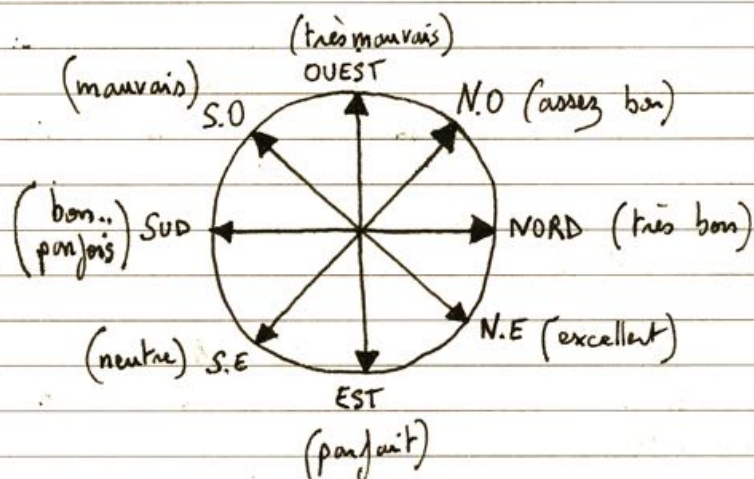 (très mauvais)
OUEST
(mauvais) S.O
N.O (assez bon)
(bon..
parfois) SUD
NORD (très bon)
(neutre) S.E
N.E (excellent)
EST
(parfait)